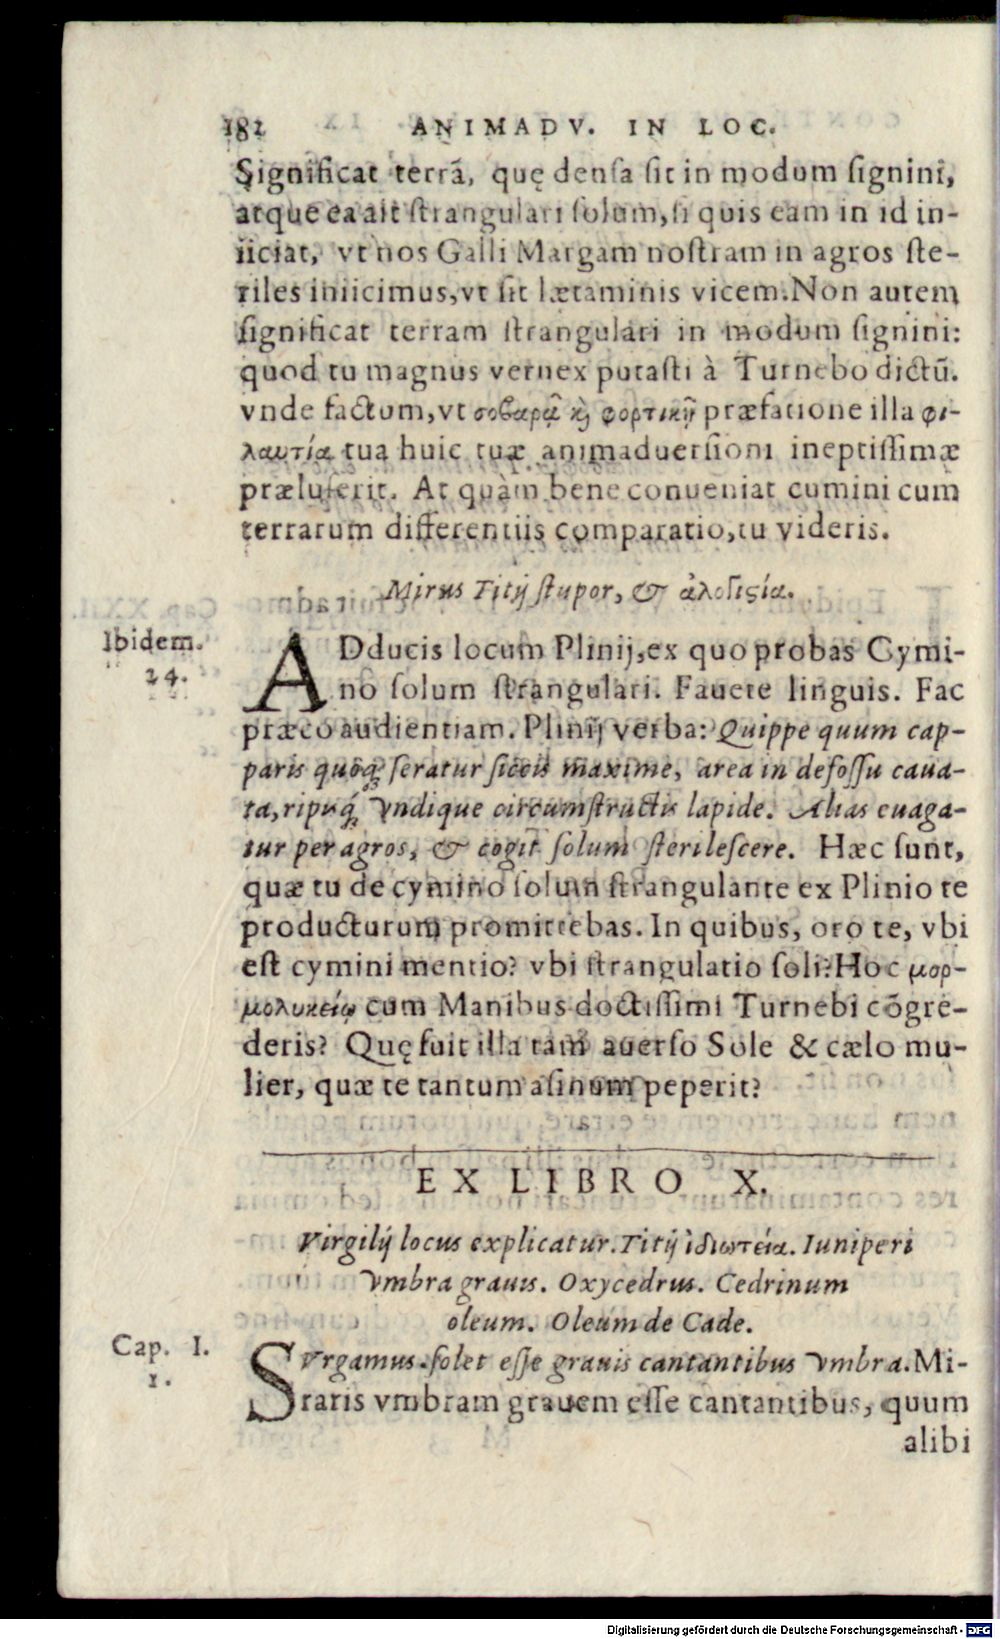 182 ANIMADV. IN LOC.
Significat terrã, quę densa sit in modum signini,
atque ea ait strangulari solum, si quis eam in id in-
iiciat, vt nos Galli Margam nostram in agros ste-
riles iniicimus, vt sit lætaminis vicem. Non autem
significat terram strangulari in modum signini:
quod tu magnus vernex putasti à Turnebo dictũ.
vnde factum, vt σοβαρᾷ καὶ φορτικῇ præfatione illa φι-
λαυτία tua huic tuæ animaduersioni ineptissimæ
præluserit. At quàm bene conueniat cumini cum
terrarum differentiis comparatio, tu videris.
Mirus Titij stupor, & ἀλογιστία.
Ibidem.
24.
ADducis locum Plinij, ex quo probas Cymi-
no solum strangulari. Fauete linguis. Fac
præco audientiam. Plinij verba: Quippe quum cap-
paris quoq; seratur siccis maximè, area in defossu caua-
ta, ripisq́; vndique circumstructis lapide. Alias euaga-
tur per agros, & cogit solum sterilescere. Hæc sunt,
quæ tu de cymino solum strangulante ex Plinio te
producturum promittebas. In quibus, oro te, vbi
est cymini mentio? vbi strangulatio soli? Hoc μορ-
μολυκείῳ cum Manibus doctissimi Turnebi cõgre-
deris? Quę fuit illa tam auerso Sole & cælo mu-
lier, quæ te tantum asinum peperit?
EX LIBRO X.
Virgilij locus explicatur. Titij ἰδιωτεία. Iuniperi
vmbra grauis. Oxycedrus. Cedrinum
oleum. Oleum de Cade.
Cap. I.
1.
SVrgamus. solet esse grauis cantantibus vmbra. Mi-
raris vmbram grauem esse cantantibus, quum
alibi
Digitalisierung gefördert durch die Deutsche Forschungsgemeinschaft - DFG